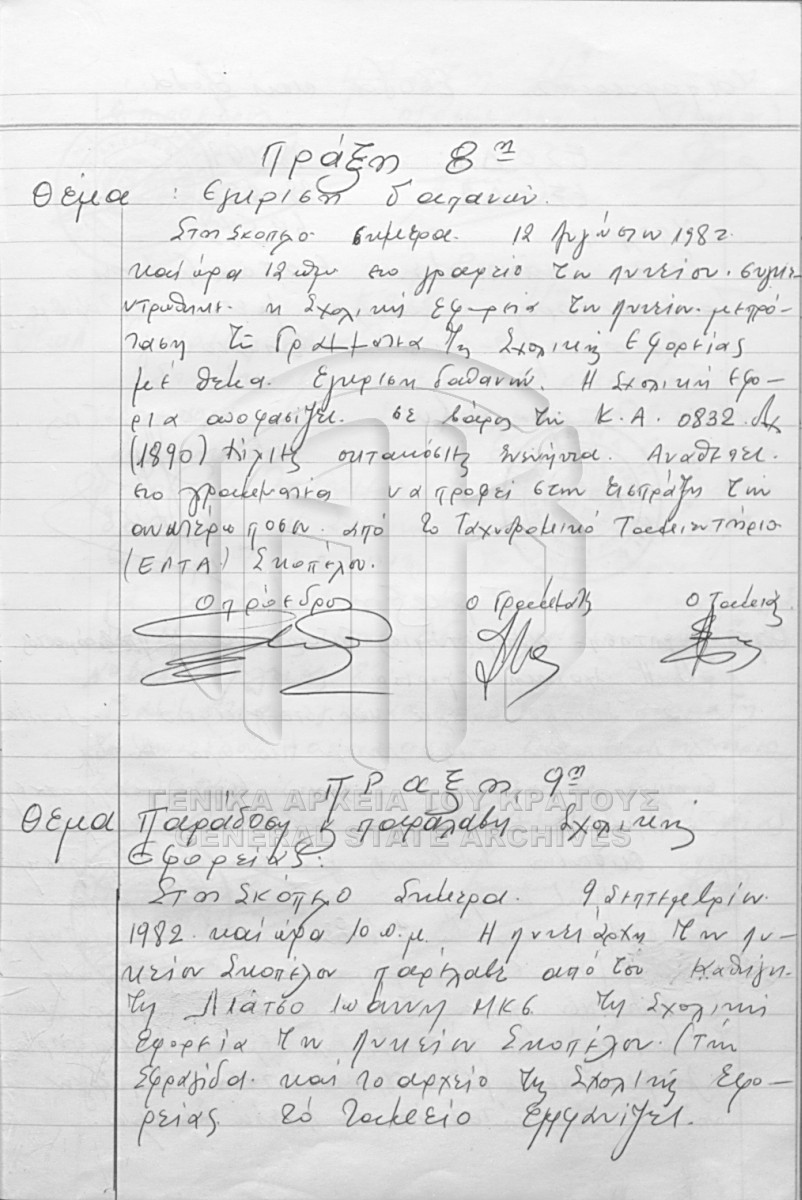 Πράξη 8η
Θέμα : Εγκριση δαπανών.
Στη Σκόπελο σήμερα 12 Αυγούστου 1982
και ώρα 12 στο γραφείο του Λυκείου συγκε-
ντρώθηκε η Σχολική Εφορεία του Λυκείου με πρό-
ταση του Γραμματέα της Σχολικής Εφορείας
μέ θέμα Εγκριση δαπανών. Η Σχολική Εφο-
ρία αποφασίζει σέ βάρος του Κ.Α. 0832 δρχ
(1890) Χίλιες οκτακόσιες ενενήντα. Αναθέτει
στο γραμματέα να προβεί στην εισπράξη του
ανωτέρω ποσου από το Ταχυδρομικό Ταμιευτήριο
(ΕΛΤΑ) Σκοπέλου.
Ο πρόεδρος Ο Γραμματέας Ο Ταμίας
ΓΕΝΙΚΑ ΑΡΧΕΙΑ ΤΟΥ ΚΡΑΤΟΥΣ
GENERAL STATE ARCHIVES
ΠΡαξη 9η
Θέμα Παράδοση παραλαβή Σχολικής
Εφορείας.
Στη Σκόπελο Σήμερα 9 Σεπτεμβρίου
1982 και ώρα 10 π.μ. Η Λυκειάρχη του Λυ-
κείου Σκοπέλου παρέλαβε από τον Καθηγη-
τη Λιάτσο Ιωάννη της Σχολική
Εφορεία του Λυκείου Σκοπέλου. (Την
Σφραγίδα και το αρχείο της Σχολικής Εφο-
ρείας το ταμείο Εμφανίζει